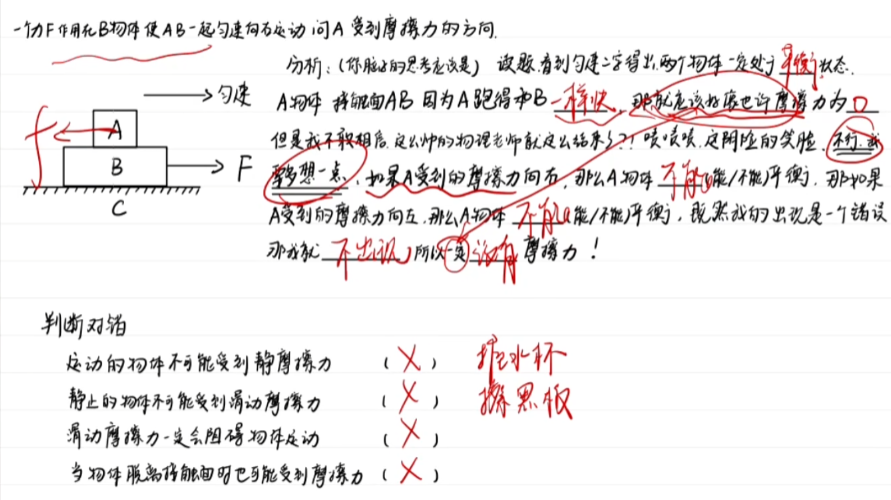 一个力F作用在B物体使AB一起匀速向右运动 问A受到摩擦力的方向.
分析:(你脑子的思考应该是) 读题看到匀速二字得出两个物体一定处于平衡状态.
A物体 接触面AB 因为A跑得和B一样快, 那就应该好像也许摩擦力为0
但是我不敢相信 这么帅的物理老师就这么结束了?! 啧啧啧, 这阴险的笑脸, 不行, 我
要多想一点, 如果A受到的摩擦力向右, 那么A物体 不能(能/不能)平衡, 那如果
A受到的摩擦力向左, 那么A物体 不能(能/不能)平衡, 既然我的出现是一个错误
那我就 不出现 所以一定 没有 摩擦力!
匀速
f
A
B
F
C
判断对错
运动的物体不可能受到静摩擦力 (X) 拿水杯
静止的物体不可能受到滑动摩擦力 (X) 擦黑板
滑动摩擦力一定会阻碍物体运动 (X)
当物体脱离接触面时也可能受到摩擦力 (X)